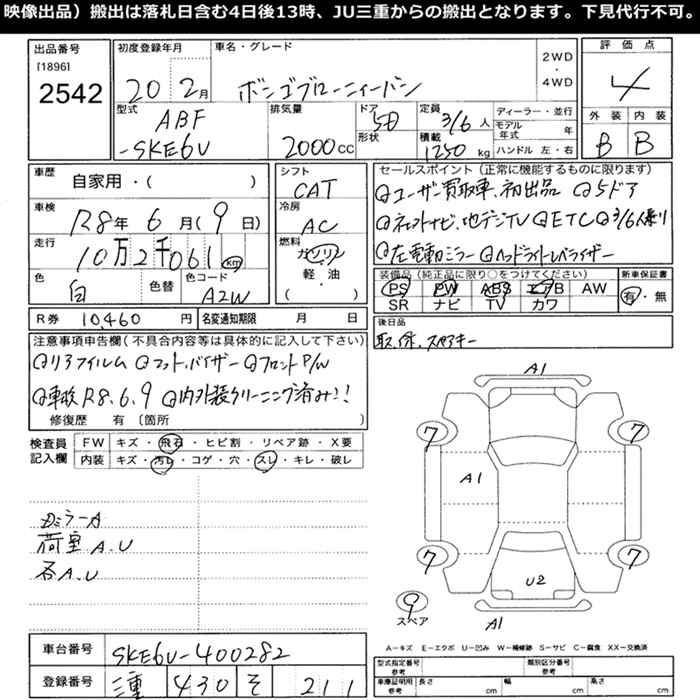 映像出品）搬出は落札日含む4日後13時、JU三重からの搬出となります。下見代行不可。
出品番号
[1896]
2542
初度登録年月
20 2月
車名・グレード
ボンゴブローニィーバン
2WD
・
4WD
評価点
4
外装 内装
B B
型式
ABF
-SKE6V
排気量
2000cc
ドア
5D
形状
定員
3/6人
積載
1250kg
ディーラー・並行
モデル年式 年
ハンドル 左・右
車歴
自家用・( )
車検
R8年 6月(9日)
走行
10万2千061km
色
白
色替
色コード
A2W
シフト
CAT
冷房
AC
燃料
ガソリン
軽・油
・( )
セールスポイント(正常に機能するものに限ります)
ユーザー買取車、初出品 5ドア
ナビ、地デジTV ETC 3/6人乗り
左電動ミラー ヘッドライトレベライザー
装備品(純正品に限り○をつけてください)
PS PW ABS エアB AW
SR ナビ TV カワ
新車保証書
有・無
R券 10460円
名変通知期限 月 日
後日品
取、保、スペアキー
注意事項申告欄(不具合内容等は具体的に記入して下さい)
リアフィルム フロントP/W
車検R8.6.9 内外装クリーニング済み!!
修復歴 有〔箇所 〕
検査員記入欄
FW キズ・飛石・ヒビ割・リペア跡・X要
内装 キズ・汚れ・コゲ・穴・スレ・キレ・破レ
ミラーA
荷室A.U
各A.U
A1
7 7
A1
7 7
U2
9
スペア
A1
A－キズ E－エクボ U－凹み W－補修跡 S－サビ C－腐食 XX－交換済
車台番号
SKE6V-400282
登録番号
三重 430 そ 211
型式指定番号
参考
類別区分番号
参考
車庫証明用
参考
長さ cm 幅 cm 高さ cm